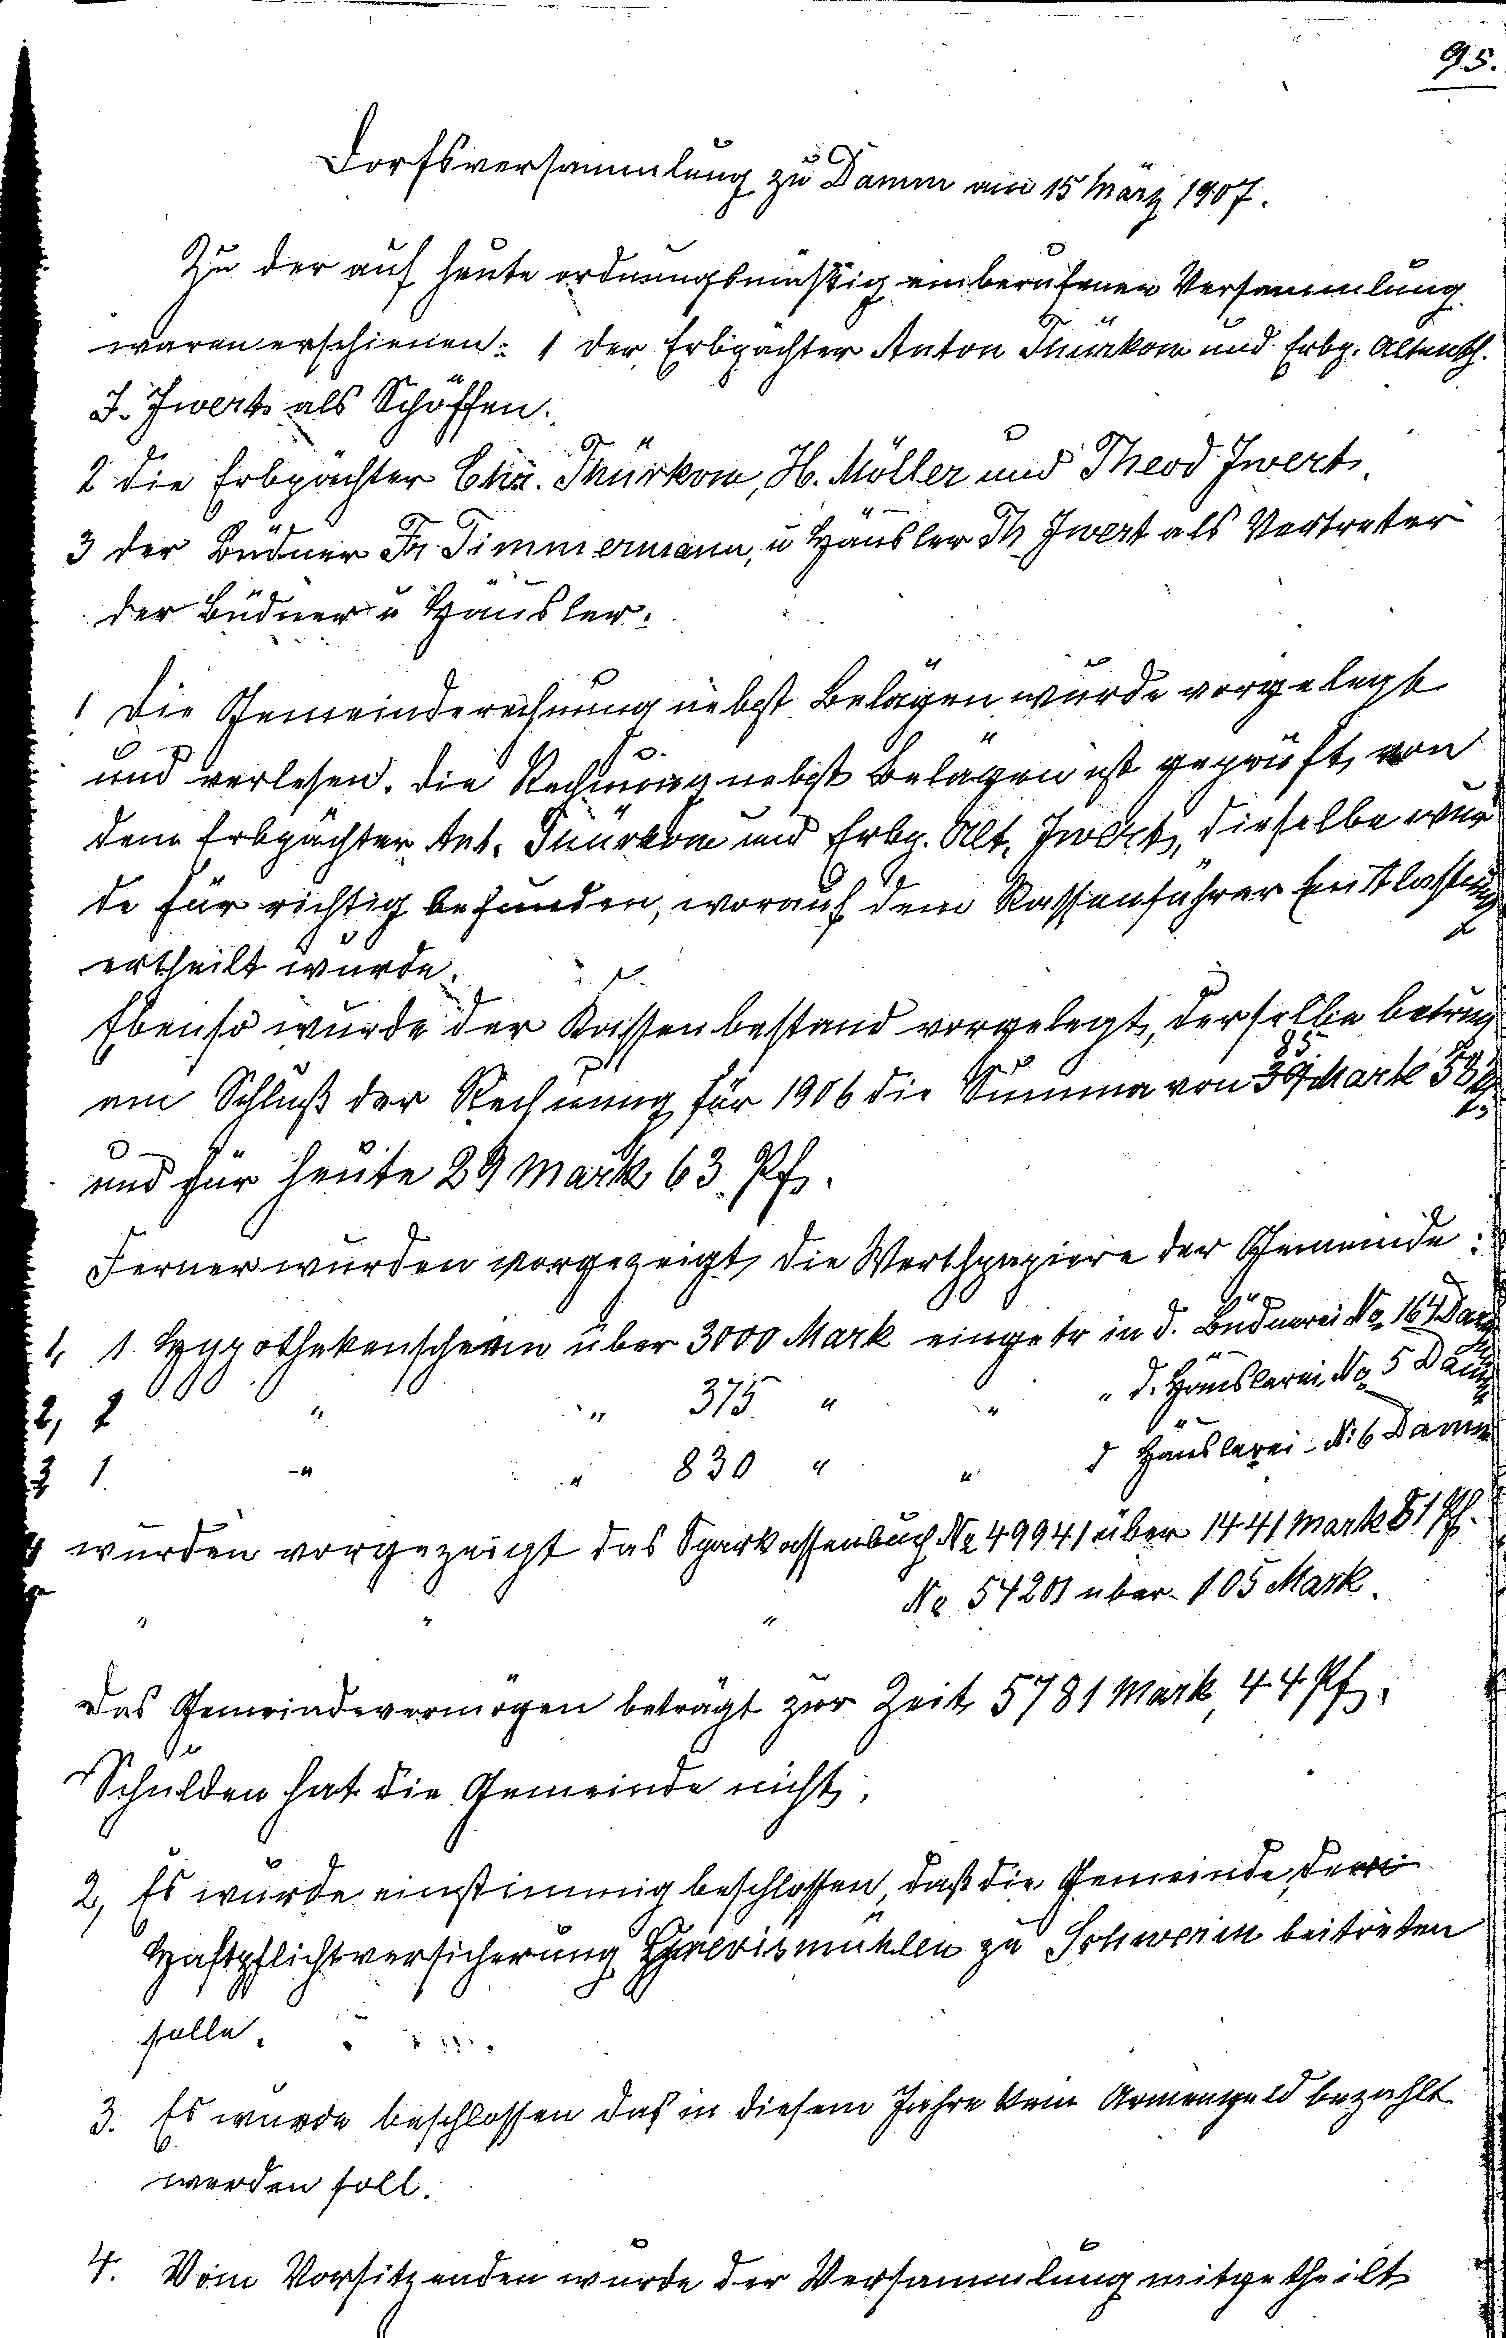 95.
Dorfsversammlung zu Damm am 15 März 1907.
Zu der auf heute ordnungsmäßig einberufenen Versammlung
waren erschienen: 1 der Erbpächter Anton Thürkow und Erbp. Altenth.
J. Jwert als Schöffen.
2 die Erbpächter Chr. Thürkow, H. Möller und Theod Jwert.
3 der Büdner Fr. Timmermann, u Häusler Th Jwert als Vertreter
der Büdner u Häusler.
1 Die Gemeinderechnung nebst Belägen wurde vorgelegt
und verlesen. Die Rechnung nebst Belägen ist geprüft von
dem Erbpächter Ant. Thürkow und Erbp. Alt. Jwert, dieselbe wur
de für richtig befunden, worauf dem Kassenführer Entlastung
ertheilt wurde.
Ebenso wurde der Kassenbestand vorgelegt, derselbe betrug
am Schluß der Rechnung für 1906 die Summa von 35 Mark
und für heute 29 Mark 63 Pf.
Ferner wurden vorgezeigt die Werthpapiere der Gemeinde:
1, 1 Hypothekenschein über 3000 Mark eingetr in d. Büdnerei No 16 Damm
2, 1 " " 375 " " " d. Häuslerei No 5 Damm
3 1 " " 830 " " d Häuslerei No 6 Damm
4 wurden vorgezeigt das Sparkassenbuch No 49941 über 1441 Mark 81 Pf.
" " " No 54201 über 105 Mark.
Das Gemeindevermögen beträgt zur Zeit 5781 Mark, 44 Pf.
Schulden hat die Gemeinde nicht.
2, Es wurde einstimmig beschlossen, daß die Gemeinde, der
Haftpflichtversicherung Grevismühlen zu Schwerin beitreten
solle.
3. Es wurde beschlossen das in diesem Jahre kein Armengeld bezahlt
werden soll.
4. Vom Vorsitzenden wurde der Versammlung mitgetheilt